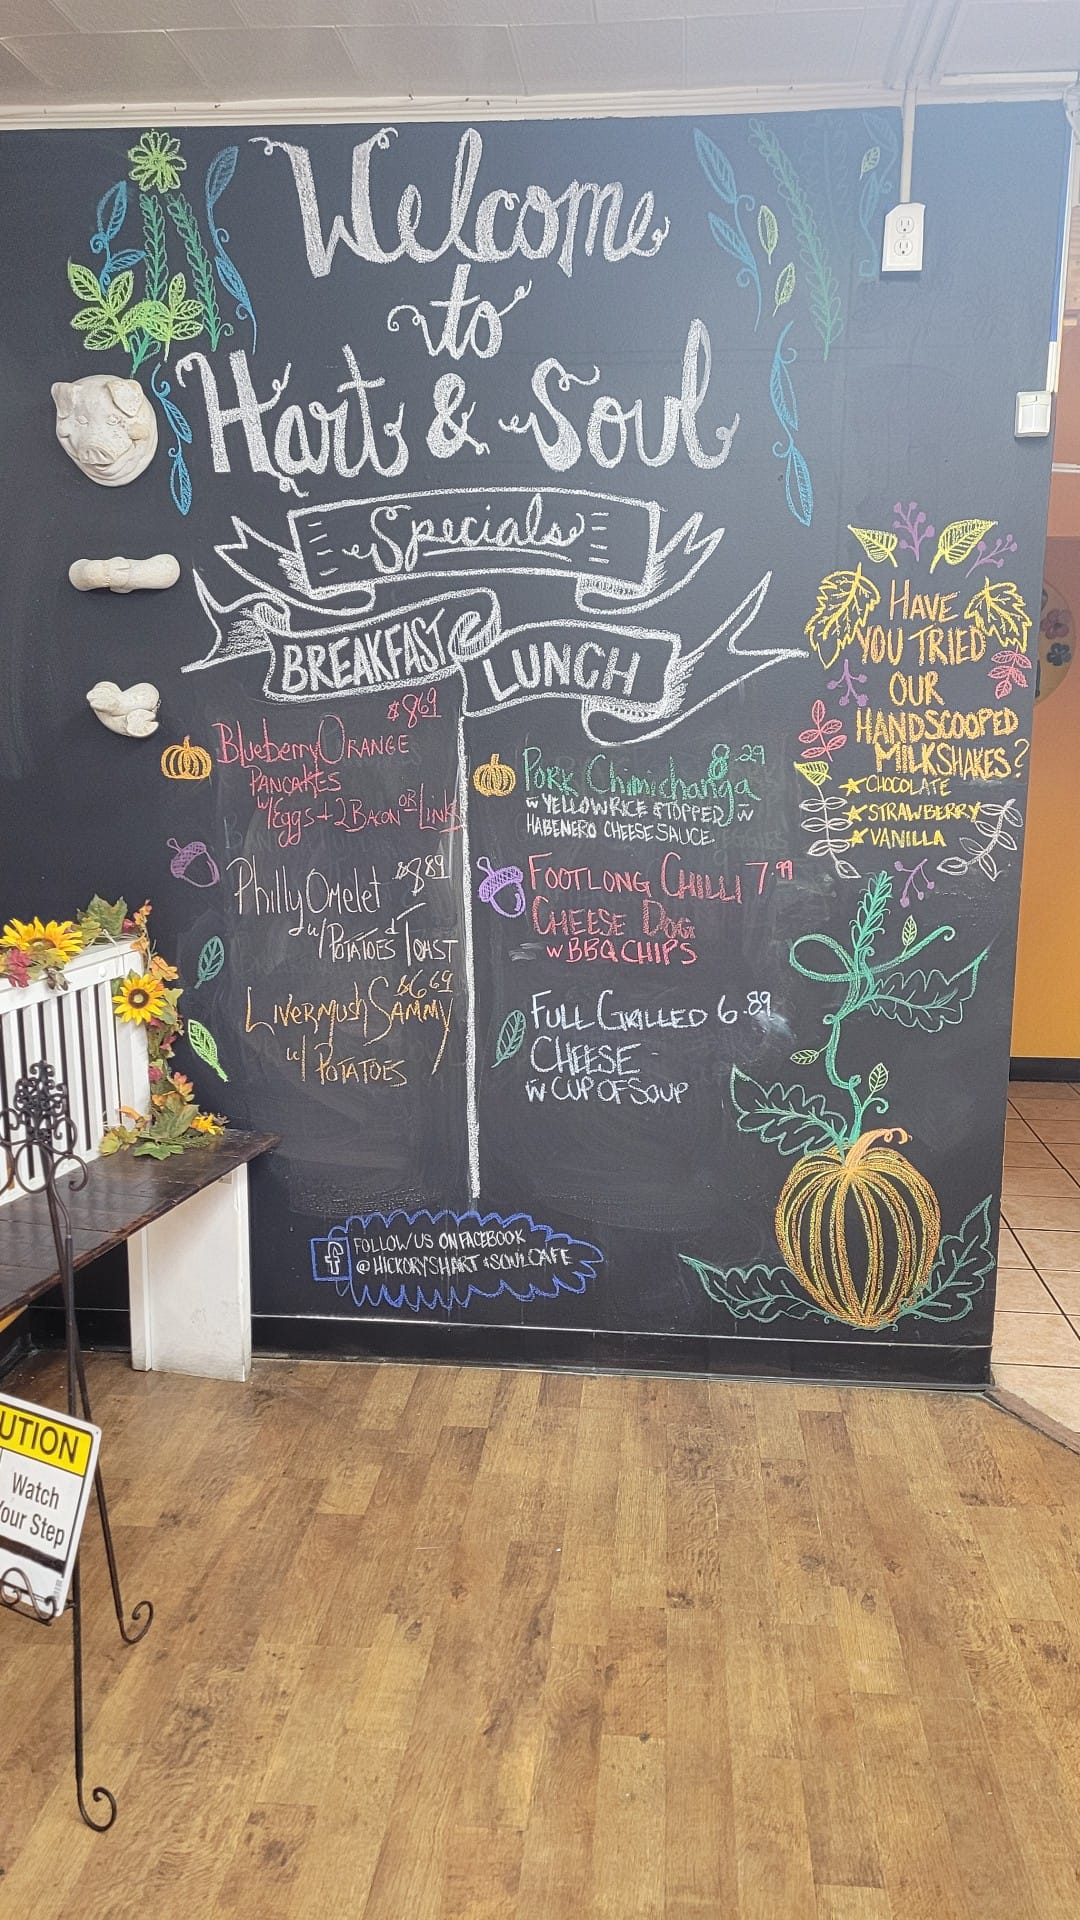 Welcome
to
Hart & Soul
Specials
BREAKFAST
LUNCH
$8.69
Blueberry ORANGE
PANCAKES
w/Eggs + 2 BACON OR LINK
$8.89
Philly Omelet
w/ POTATOES & TOAST
$6.69
LIVERMUSH SAMMY
w/ POTATOES
PORK Chimichanga 8.29
w YELLOW RICE & TOPPED w
HABENERO CHEESE SAUCE
FOOTLONG CHILLI 7.99
CHEESE DOG
w BBQ CHIPS
FULL GRILLED 6.89
CHEESE
w CUP OF SOUP
HAVE
YOU TRIED
OUR
HANDSCOOPED
MILKSHAKES?
★ CHOCOLATE
★ STRAWBERRY
★ VANILLA
f FOLLOW US ON FACEBOOK
@HICKORYSHART&SOULCAFE
UTION
Watch
our Step